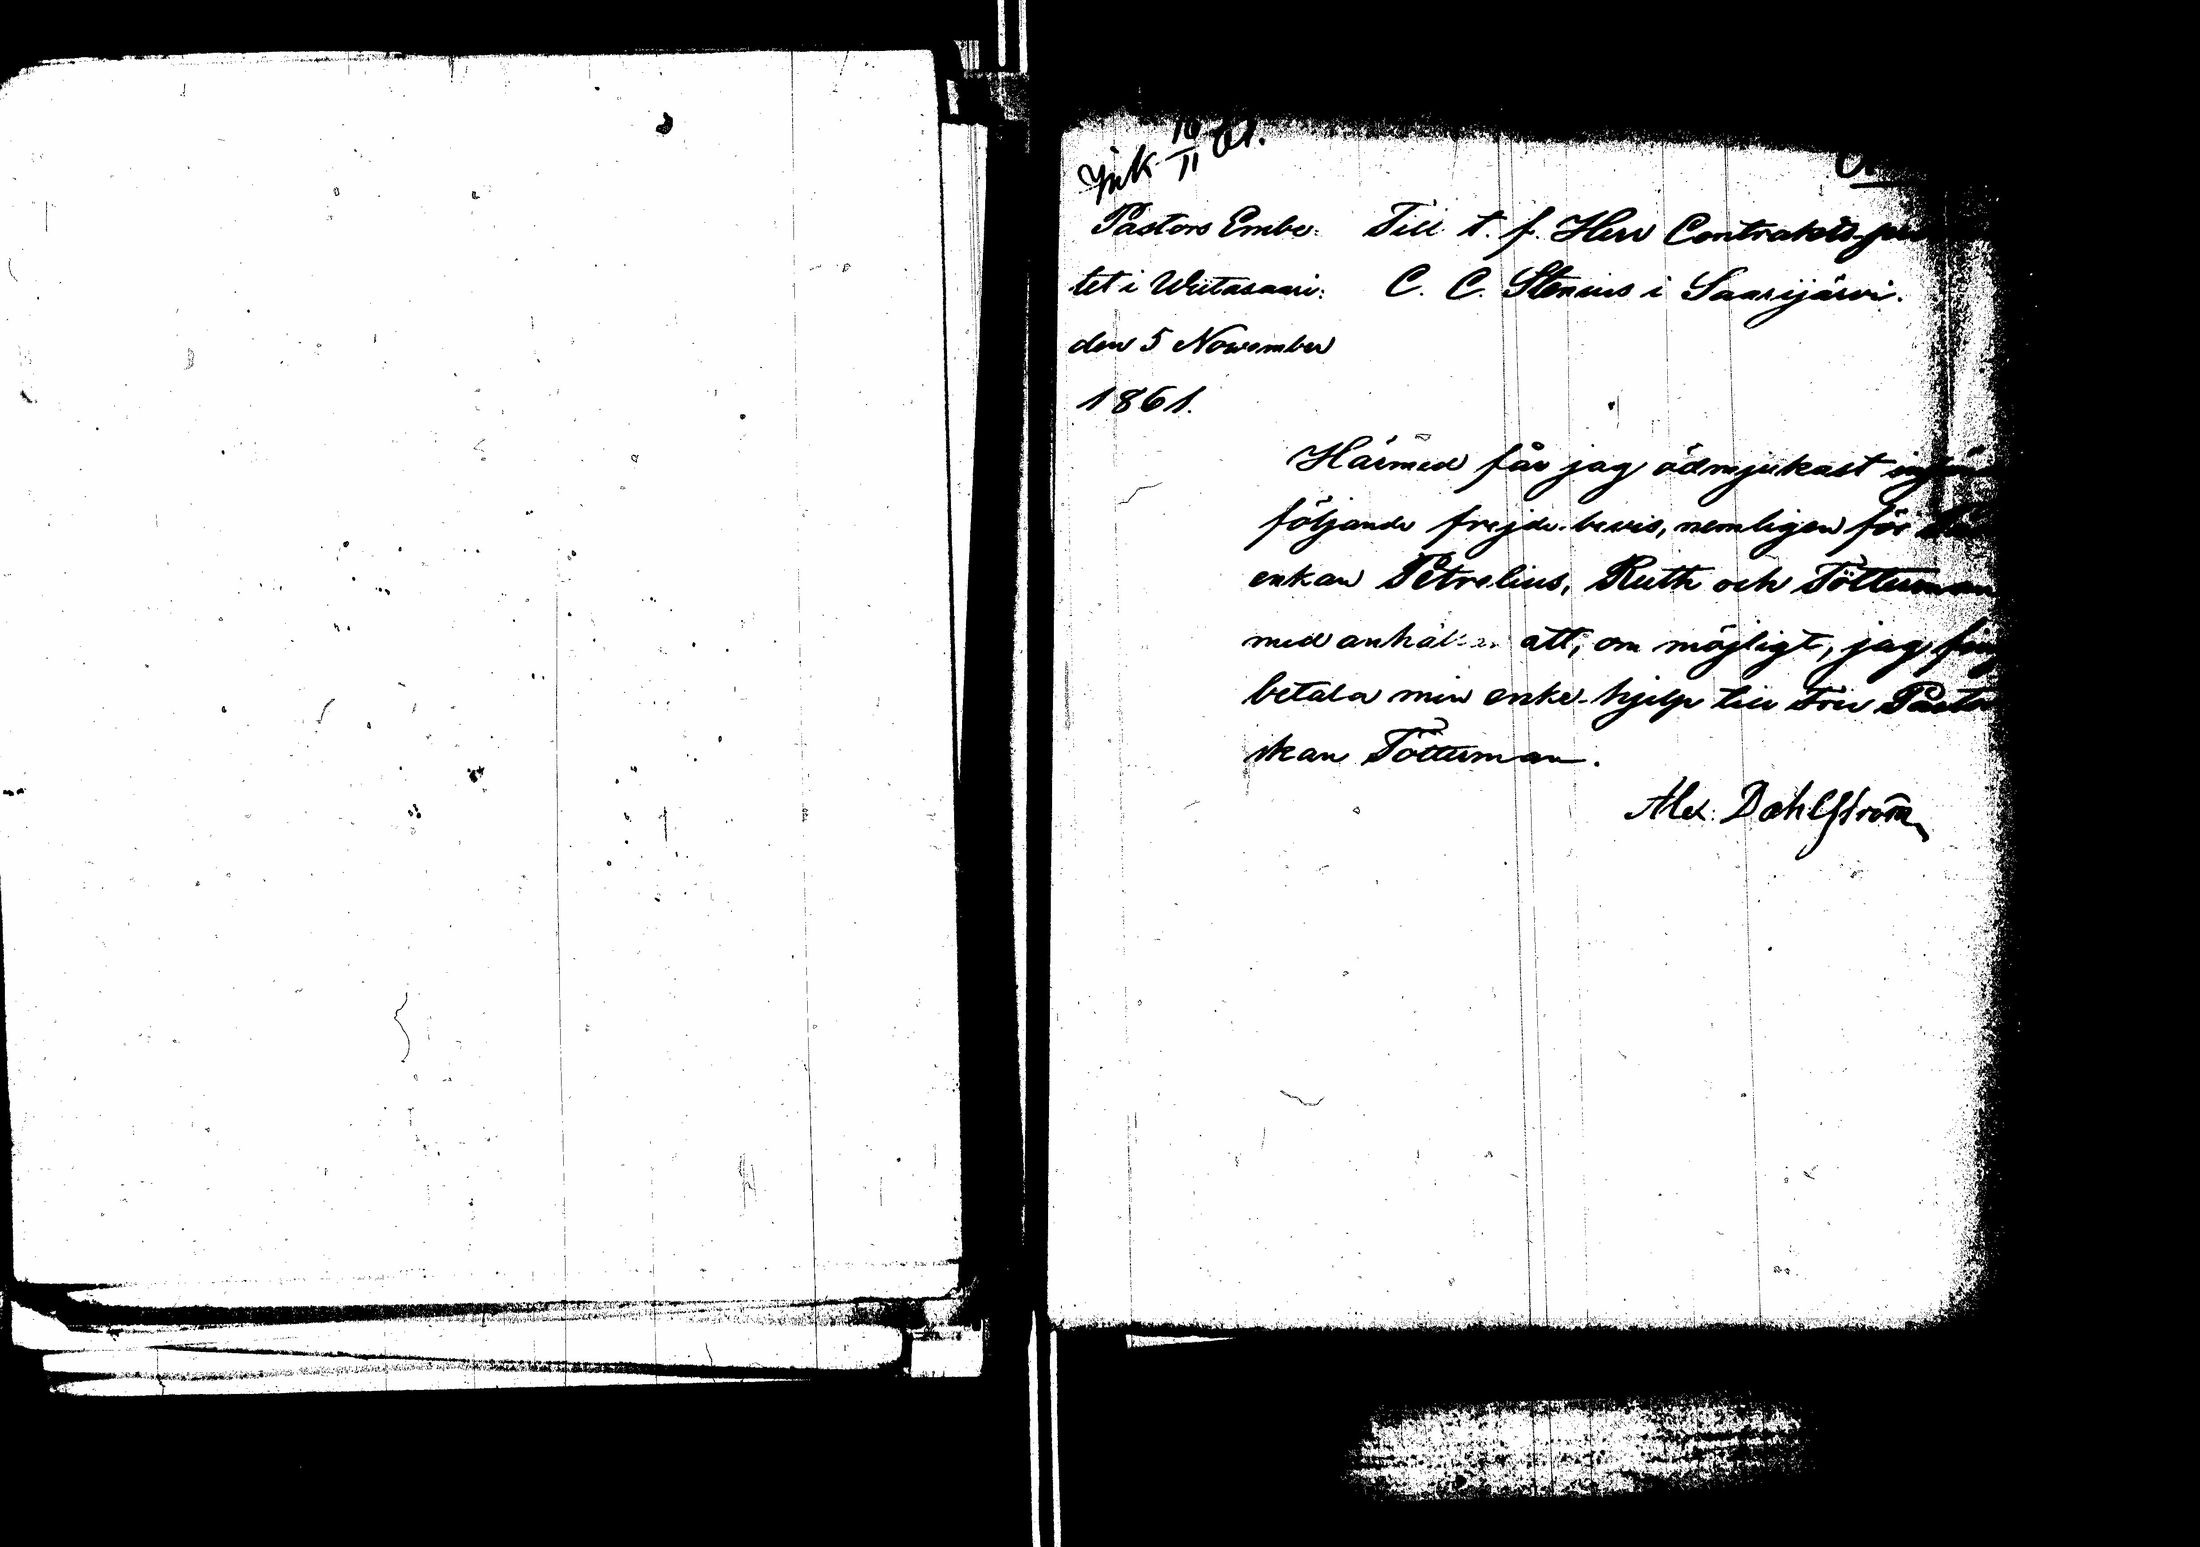 Ink. 10/11 61.
Pastors Embe-
tet i Wiitasaari.
den 5 November
1861.
Till t. f. Herr Contrakts-
C. C. Stenius i Saarijärvi.
Härmed får jag ödmjukast
följande frejde-bevis, nemligen för
enkan Petrelius, Ruth och Tötterman
med anhållan att, om möjligt, jag
betala min enke-hjelp till Fru Pasto
skan Tötterman.
Alex. Dahlström